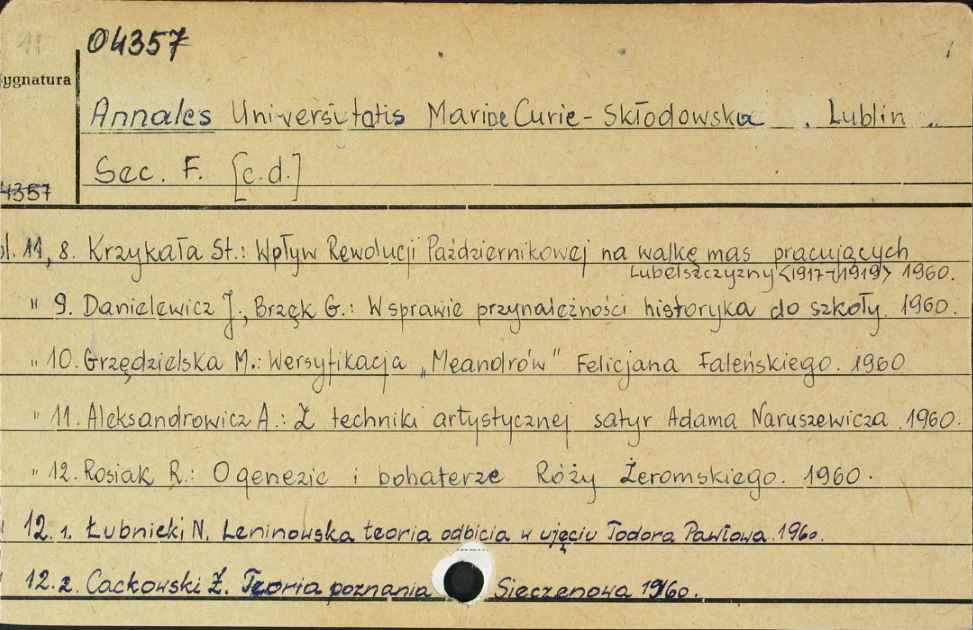 11
04357
ygnatura
Annales Universitatis Mariae Curie-Skłodowska. Lublin.
Sec. F. [c.d.]
4357
ol. 11, 8. Krzykała St.: Wpływ Rewolucji Październikowej na walkę mas pracujących
Lubelszczyzny <1917-1919> 1960.
" 9. Danielewicz J., Brzęk G.: W sprawie przynależności historyka do szkoły. 1960.
" 10. Grzędzielska M.: Wersyfikacja „Meandrów" Felicjana Faleńskiego. 1960
" 11. Aleksandrowicz A.: Z techniki artystycznej satyr Adama Naruszewicza. 1960.
" 12. Rosiak R.: O genezie i bohaterze Róży Żeromskiego. 1960.
12. 1. Łubnicki N. Leninowska teoria odbicia w ujęciu Todora Pawłowa. 1960.
12. 2. Cackowski Z. Teoria poznania Sieczenowa 1960.